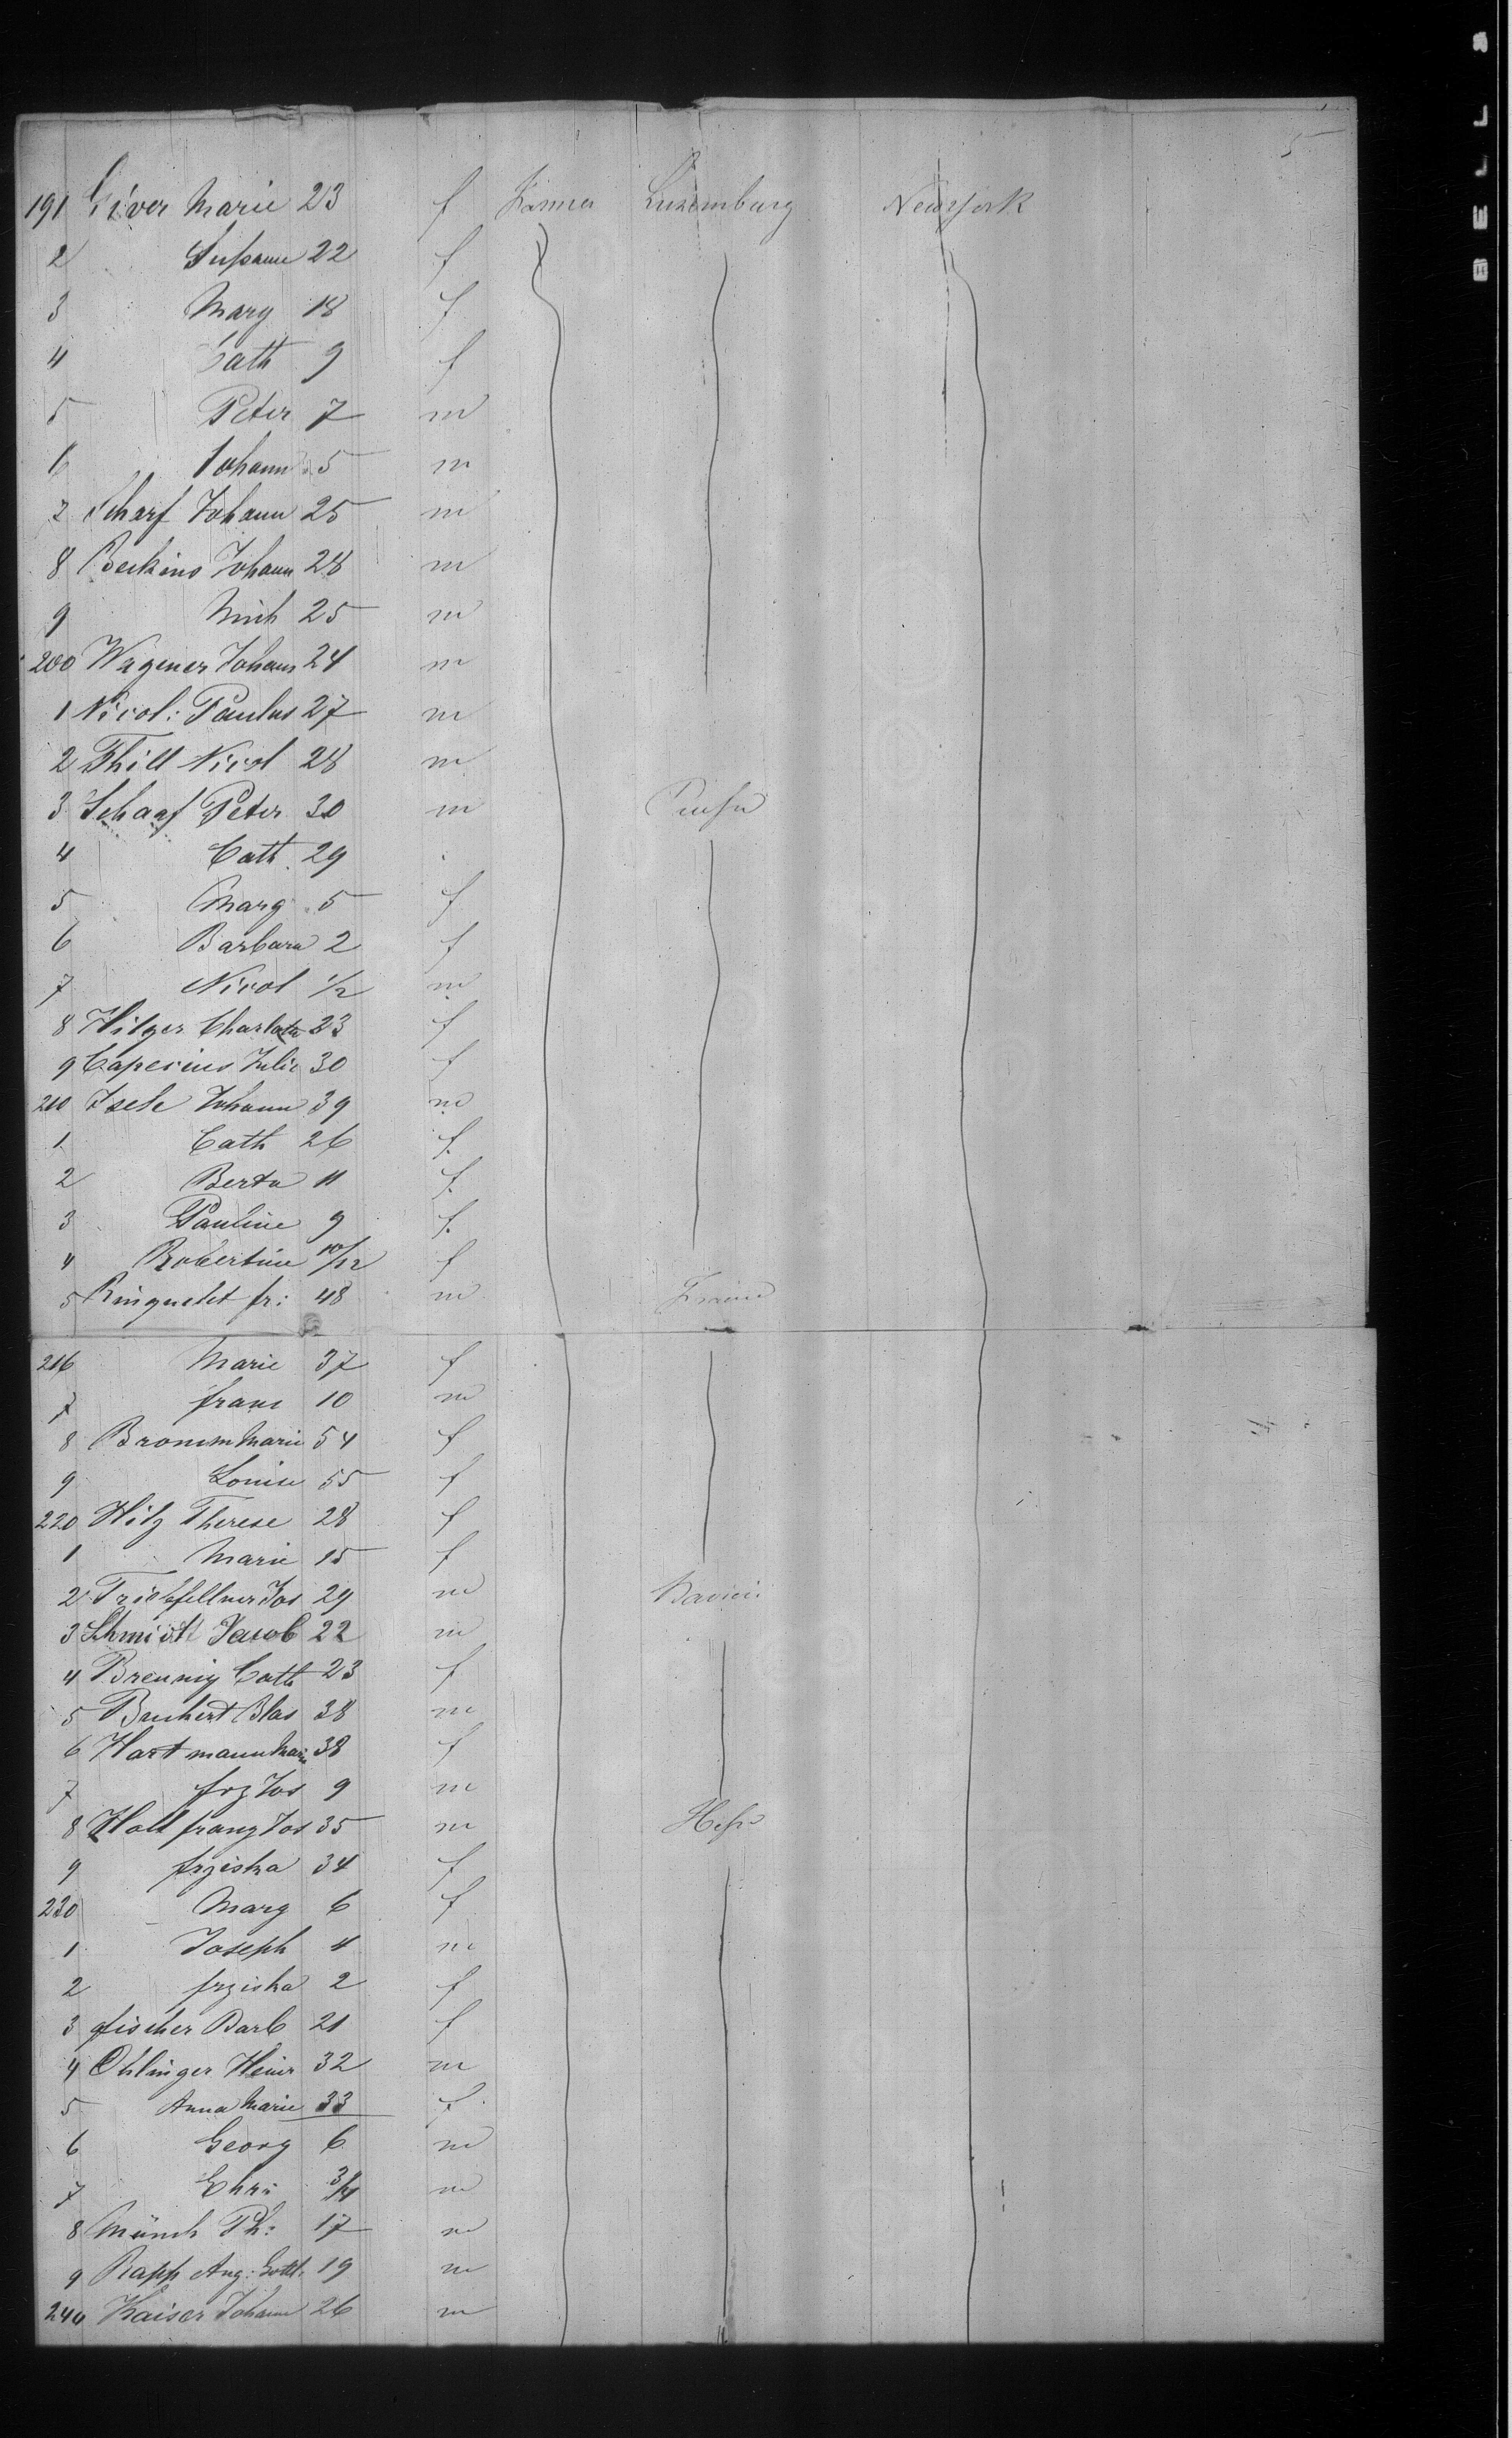 5
191 Giver Marie 23 f Farmer Luxemburg Newyork
2 Susanne 22 f
3 Marg 18 f
4 Cath 9 f
5 Peter 7 m
6 Johann 5 m
7 Scharf Johann 25 m
8 Beckins Johann 28 m
9 Mich 25 m
200 Wagener Johann 24 m
1 Nicol: Paulus 27 m
2 Thill Nicol 28 m
3 Schaaf Peter 30 m
4 Cath. 29
5 Marg 5 f
6 Barbara 2 f
7 Nicol 1/2 m
8 Hilger Charlotte 23 f
9 Capesius Julie 30 f
210 Isele Johann 39 m
1 Cath 26 f.
2 Berta 11 f.
3 Pauline 9 f.
4 Robertine 10/12 f
5 Ringuelet fr: 48 m
216 Marie 37 f
7 frans 10 m
8 Bromm Marie 54 f
9 Louise 55 f
220 Hilz Therese 28 f
1 Marie 15 f
2 Jos 29 m
3 Schmidt Jacob 22 m
4 Breunig Cath 23 f
5 Blas 38 m
6 Hartmann Marie 38 f
7 frz Jos 9 m
8 franz Jos 35 m
9 frziska 34 f
230 Marg 6 f
1 Joseph 4 m
2 frziska 2 f
3 fischer Barb 21 f
4 Ohlinger Heinr 32 m
5 Anna Marie 33 f
6 Georg 6 m
7 Chr: 3/4 m
8 Münch Ph: 17 m
9 Rapp Aug: Gottl. 19 m
240 Kaiser Johann 26 m
BELL &